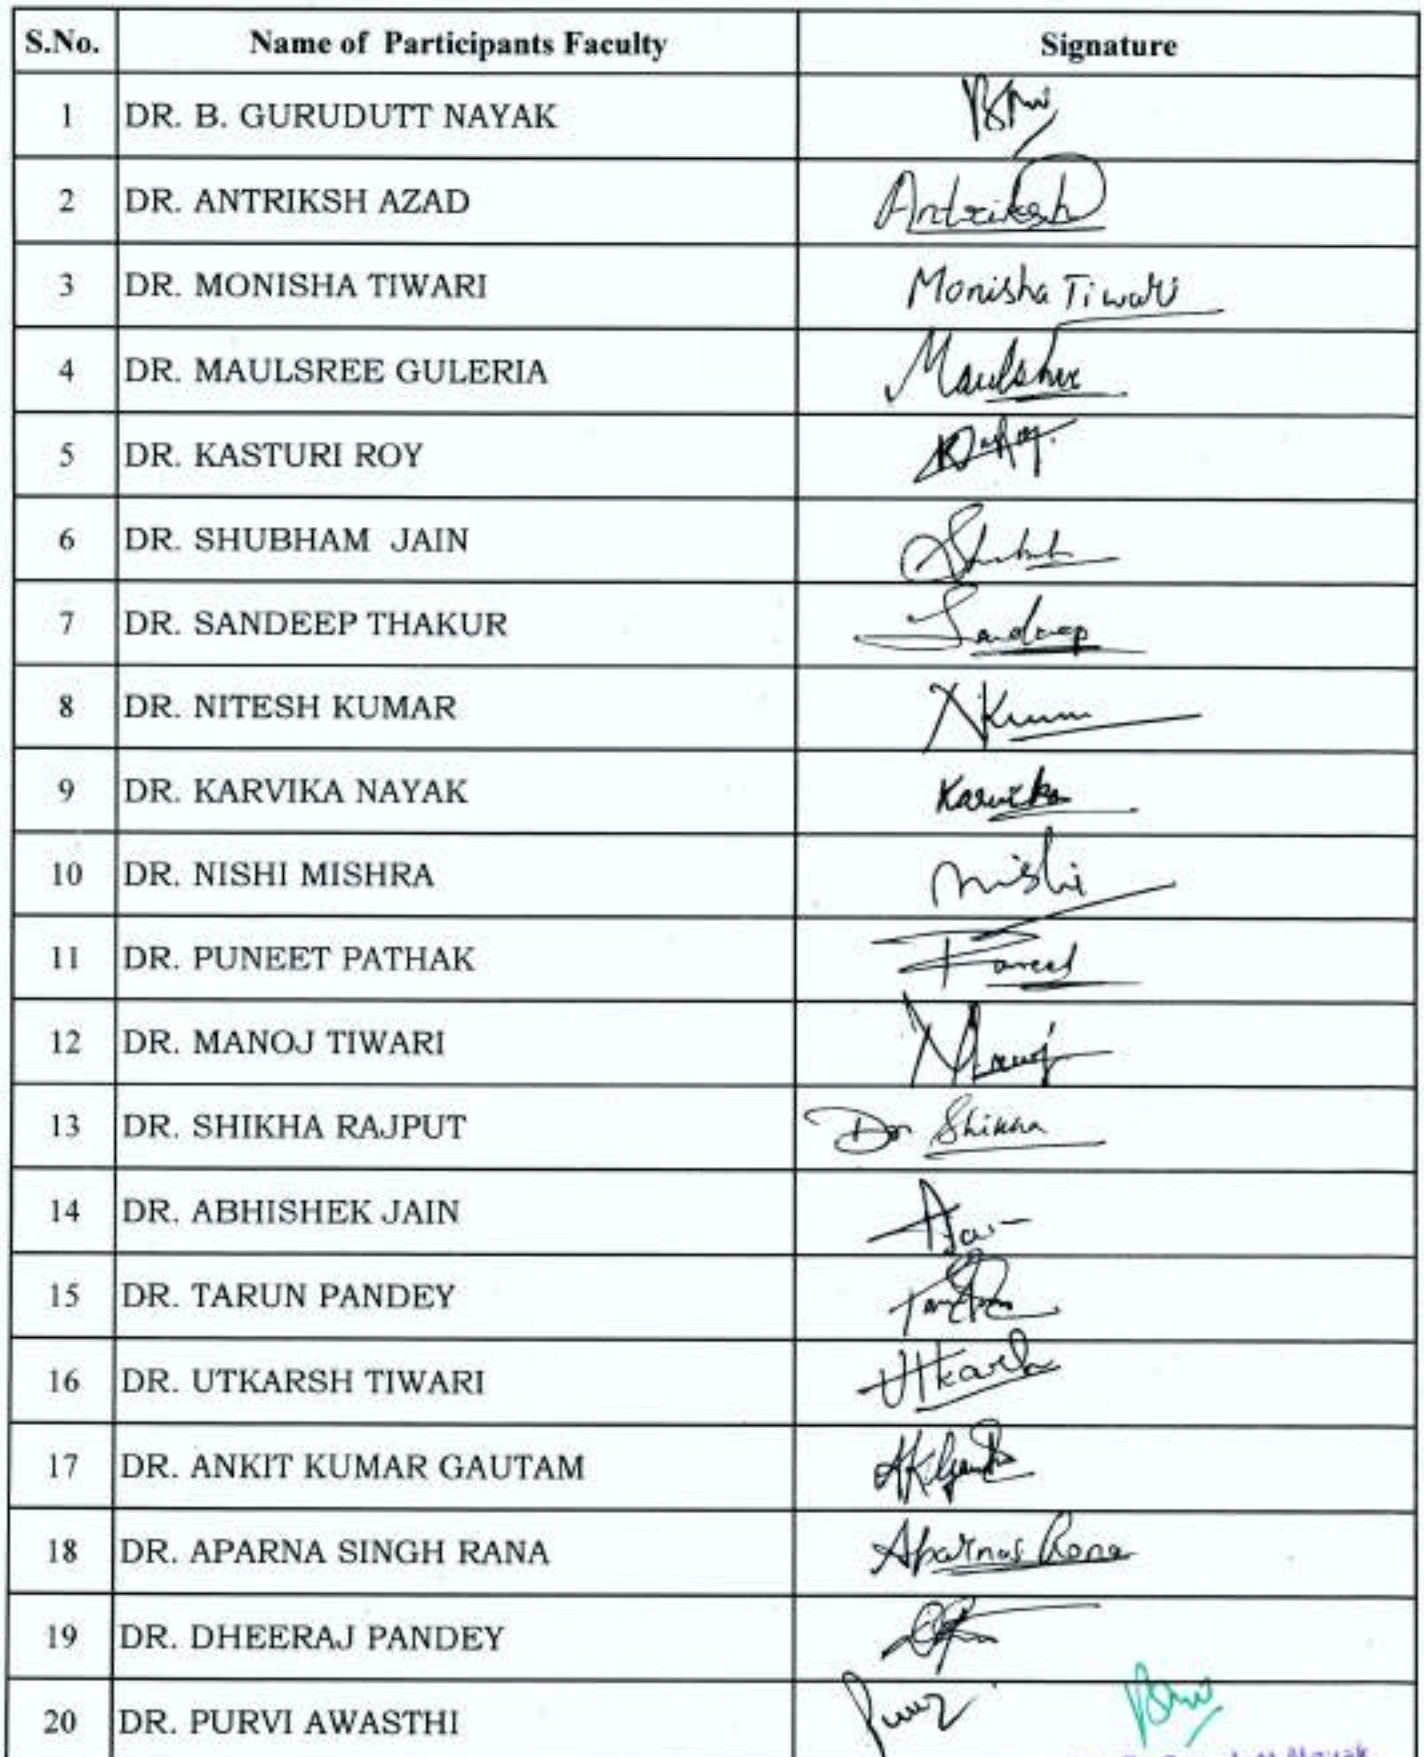 S.No. Name of Participants Faculty Signature
1 DR. B. GURUDUTT NAYAK
2 DR. ANTRIKSH AZAD Antriksh
3 DR. MONISHA TIWARI Monisha Tiwari
4 DR. MAULSREE GULERIA Maulshree
5 DR. KASTURI ROY
6 DR. SHUBHAM JAIN
7 DR. SANDEEP THAKUR Sandeep
8 DR. NITESH KUMAR NKumar
9 DR. KARVIKA NAYAK Karvika
10 DR. NISHI MISHRA Nishi
11 DR. PUNEET PATHAK
12 DR. MANOJ TIWARI Manoj
13 DR. SHIKHA RAJPUT Dr Shikha
14 DR. ABHISHEK JAIN
15 DR. TARUN PANDEY
16 DR. UTKARSH TIWARI Utkarsh
17 DR. ANKIT KUMAR GAUTAM
18 DR. APARNA SINGH RANA Aparna Rana
19 DR. DHEERAJ PANDEY
20 DR. PURVI AWASTHI